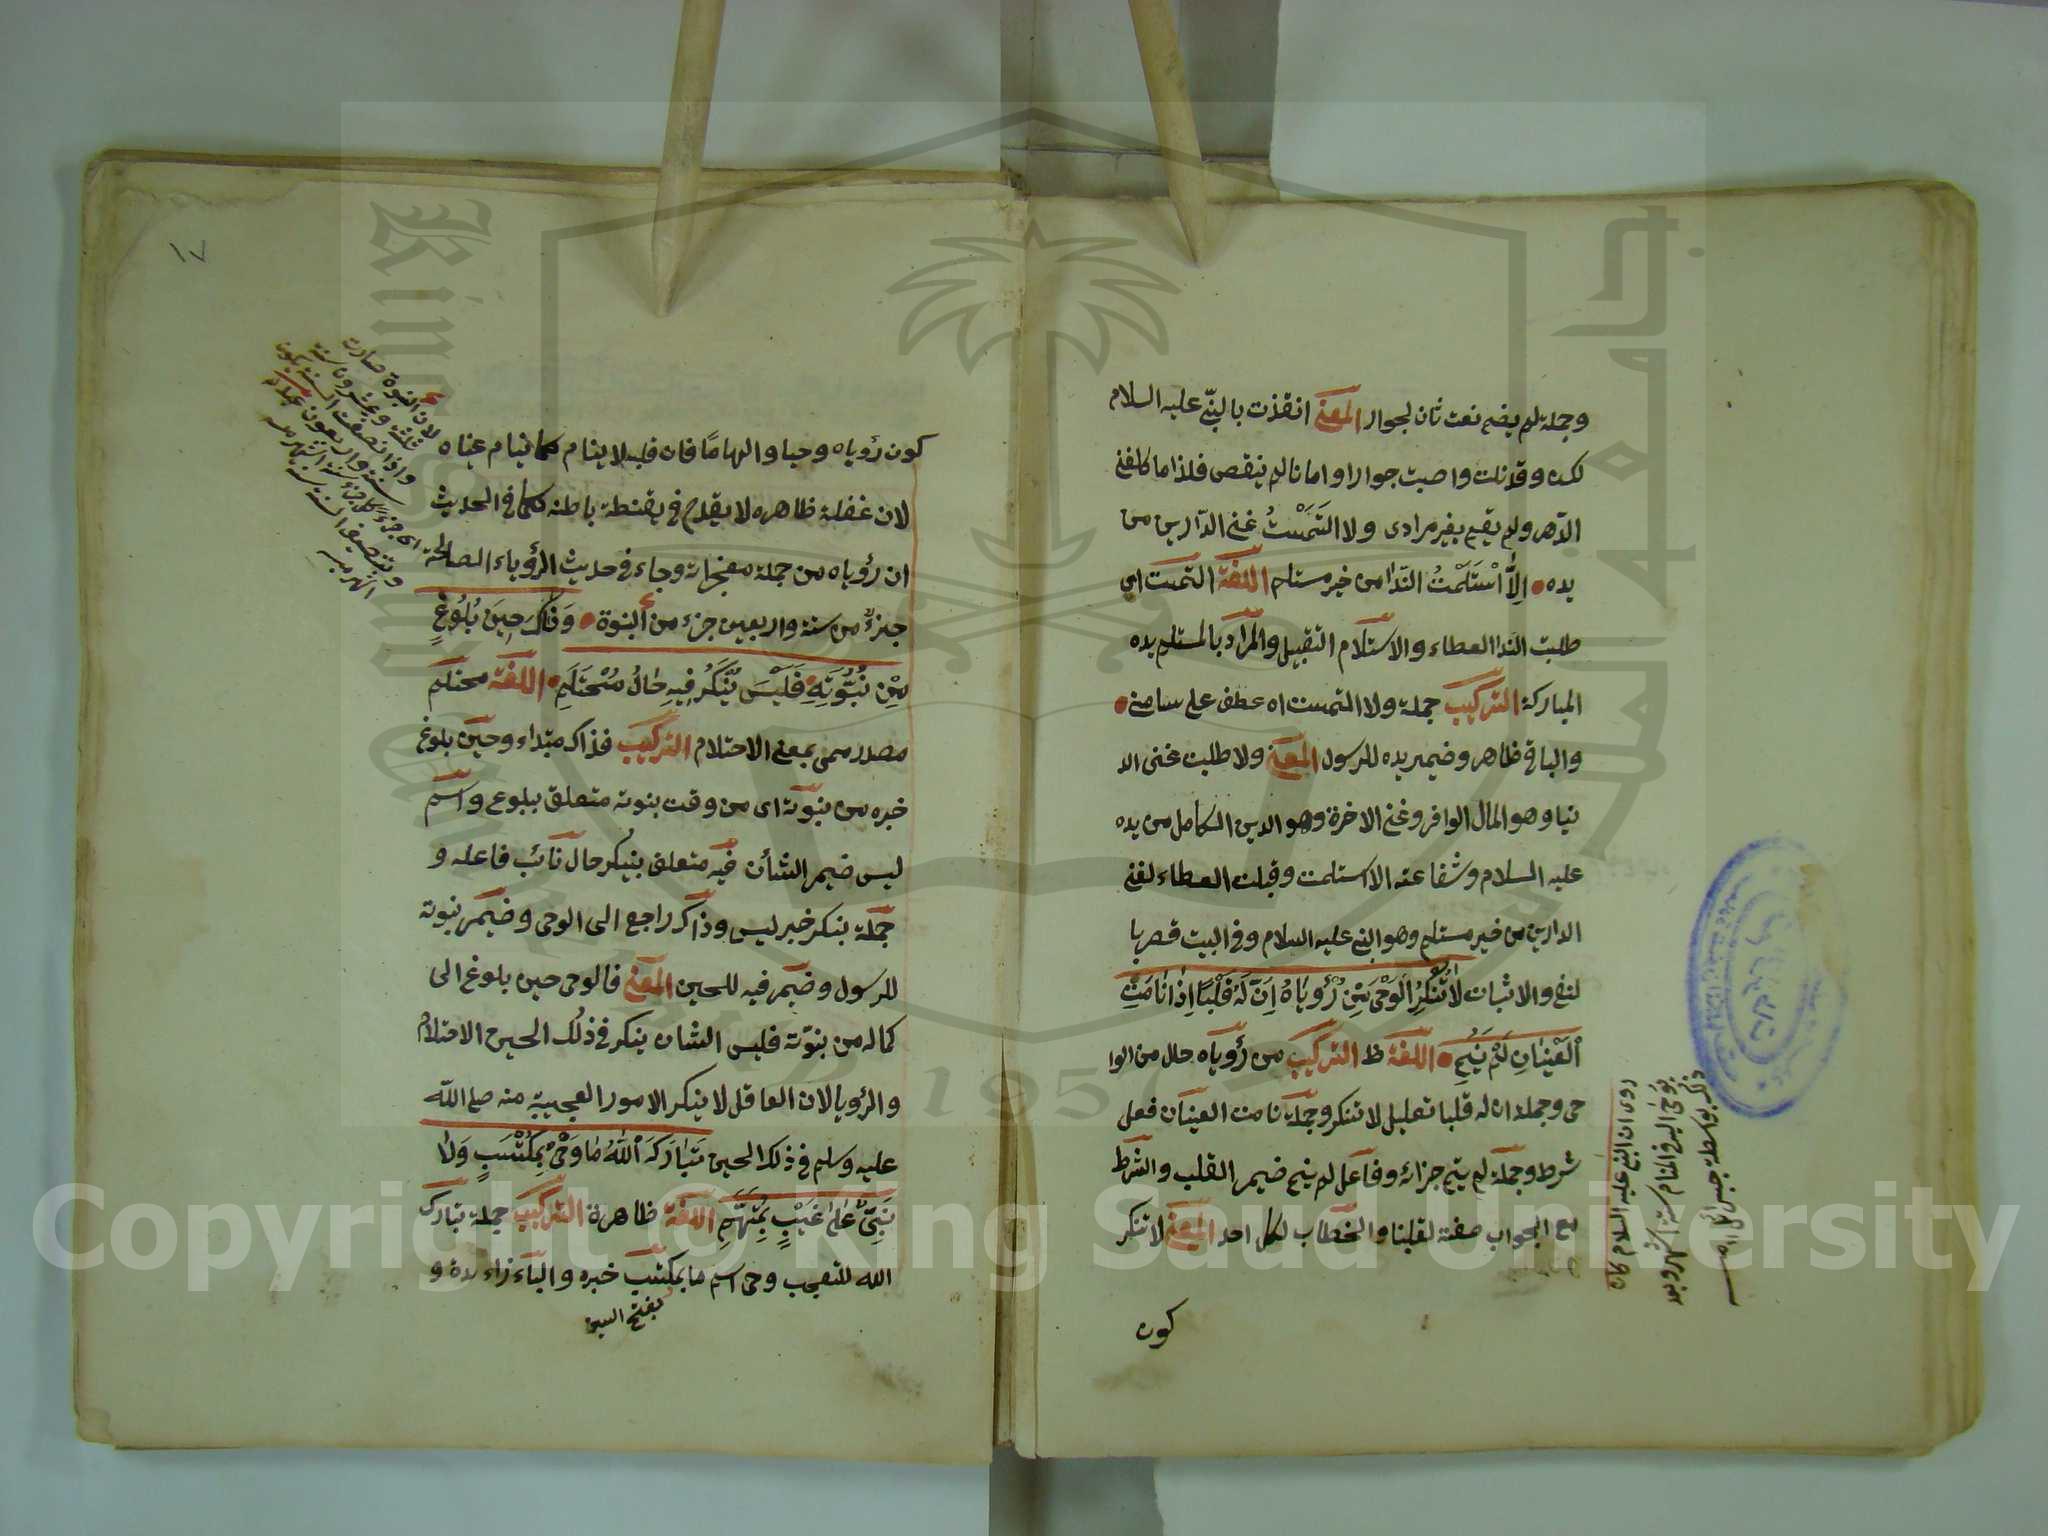 وجملة لم يضم نعت ثان لجوار المعنى انقذت بالنبى عليه السلام
لكنه وقد نلت واصبت جوارا وامانا لم ينقص فلذا ما كلفنى
الدهر ولم يقع بغير مرادى ولا التَمَسْتُ غنى الدارين من
يده الاّ اسْتَلَمْتُ النّدا من خير مستلم اللغة التمست اى
طلبت الندا العطاء والاستلام التقبيل والمراد بالمستلم يده
المباركة التركيب جملة ولا التمست اه عطف على سامنى
والباقى ظاهر وضمير يده للرسول المعنى ولا طلبت غنى الد
نيا وهو المال الوافر وغنى الاخرة وهو الدين الكامل من يده
عليه السلام وشفاعته الا استلمت وقبلت العطاء لغنى
الدارين من خير مستلم وهو النبى عليه السلام وفى البيت قصر با
لنفى والاثبات لا تُنْكِرُ الوَحْىَ مِنْ رُؤْيَاهُ اِنَّ لَهُ قَلْبًا اِذَا نَامَتِ
الْعَيْنَانِ لَمْ يَنَمِ اللغة ظ التركيب من رؤياه حال من الو
حى وجملة ان له قلبا تعليل لا تنكر وجملة نامت العينان فعل
شرط وجملة لم ينم جزائه وفاعل لم ينم ضمير القلب والشرط
مع الجواب صفة لقلبا والخطاب لكل احد المعنى لا تنكر
كون
روى ان النبى عليه السلام كان
يوحى اليه فى المنام ستة اشهر وبعد
ذلك بواسطة جبرائل
١٧
كون رؤياه وحيا والهاما فان قلبه لا ينام كما ينام عيناه
لان غفلة ظاهره لا يقدح فى يقظة باطنه كما فى الحديث
ان رؤياه من جملة معجزاته وجاء فى حديث الرؤياء الصالحة
جزءٌ من ستة واربعين جزء من النبوة وَذَاكَ حِينَ بُلُوغٍ
مِنْ نُبُوَّتِهِ فَلَيْسَ يُنْكَرُ فِيهِ حَالُ مُحْتَلِمِ اللغة محتلم
مصدر ميمى بمعنى الاحتلام التركيب فذاك مبتداء وحين بلوغ
خبره من نبوته اى من وقت نبوته متعلق ببلوغ واسم
ليس ضمير الشأن فيه متعلق بينكر حال نائب فاعله و
جملة ينكر خبر ليس وذاك راجع الى الوحى وضمير نبوته
للرسول وضمير فيه للحين المعنى فالوحى حين بلوغ الى
كماله من نبوته فليس الشان ينكر فى ذلك الحين الاحتلام
والرؤيا لان العاقل لا ينكر الامور العجيبة منه صلى اللّه
عليه وسلم فى ذلك الحين تَبَارَكَ اللّٰهُ مَا وَحْىٌ بِمُكْتَسَبٍ وَلَا
نَبِىٌّ عَلَى غَيْبٍ بِمُتَّهَمِ اللغة ظاهرة التركيب جملة تبارك
الله للتعجب وحى اسم ما بمكتسب خبره والباء زاءدة و
بفتح السين
لان النبوة صارت
ثلثة وعشرون سنة
واذا نصفت السنة يكون
ستة واربعون